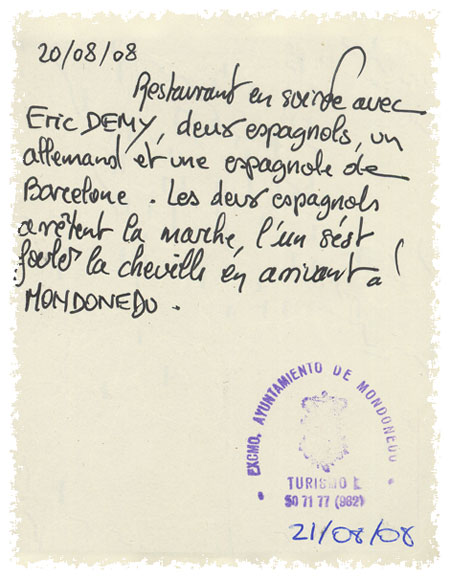 20/08/08
Restaurant en soirée avec
Eric DEMY, deux espagnols, un
allemand et une espagnole de
Barcelone. Les deux espagnols
arrêtent la marche, l'un s'est
foulé la cheville en arrivant à
MONDONEDO.
EXCMO. AYUNTAMIENTO DE MONDOÑEDO
TURISMO
50 71 77 (982)
21/08/08